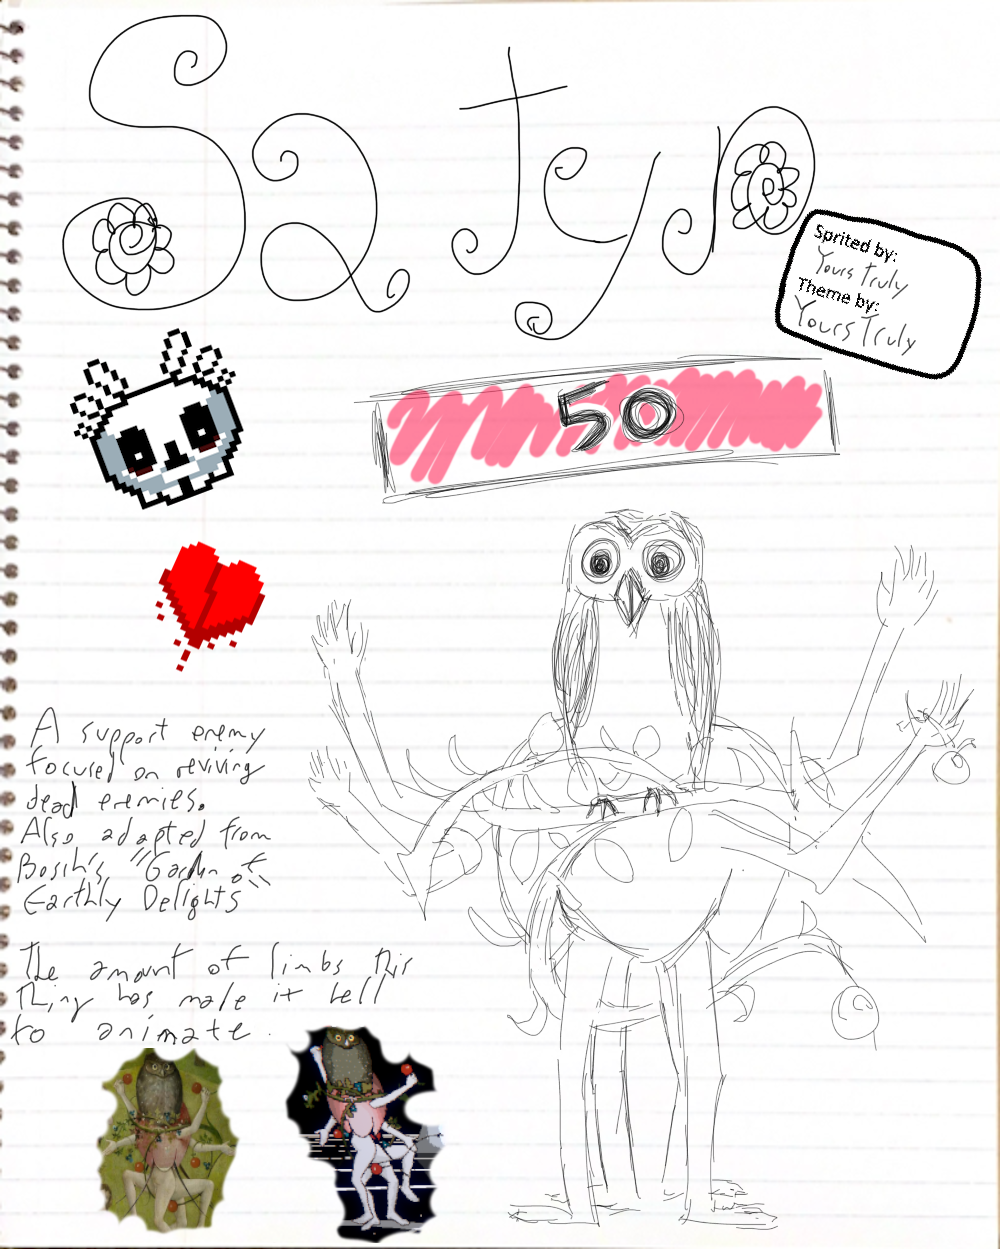 Satyr
Sprited by:
Yours Truly
Theme by:
Yours Truly
50
A support enemy
focused on reviving
dead enemies.
Also adapted from
Bosch's "Garden of
Earthly Delights"
The amount of limbs this
thing has made it hell
to animate.